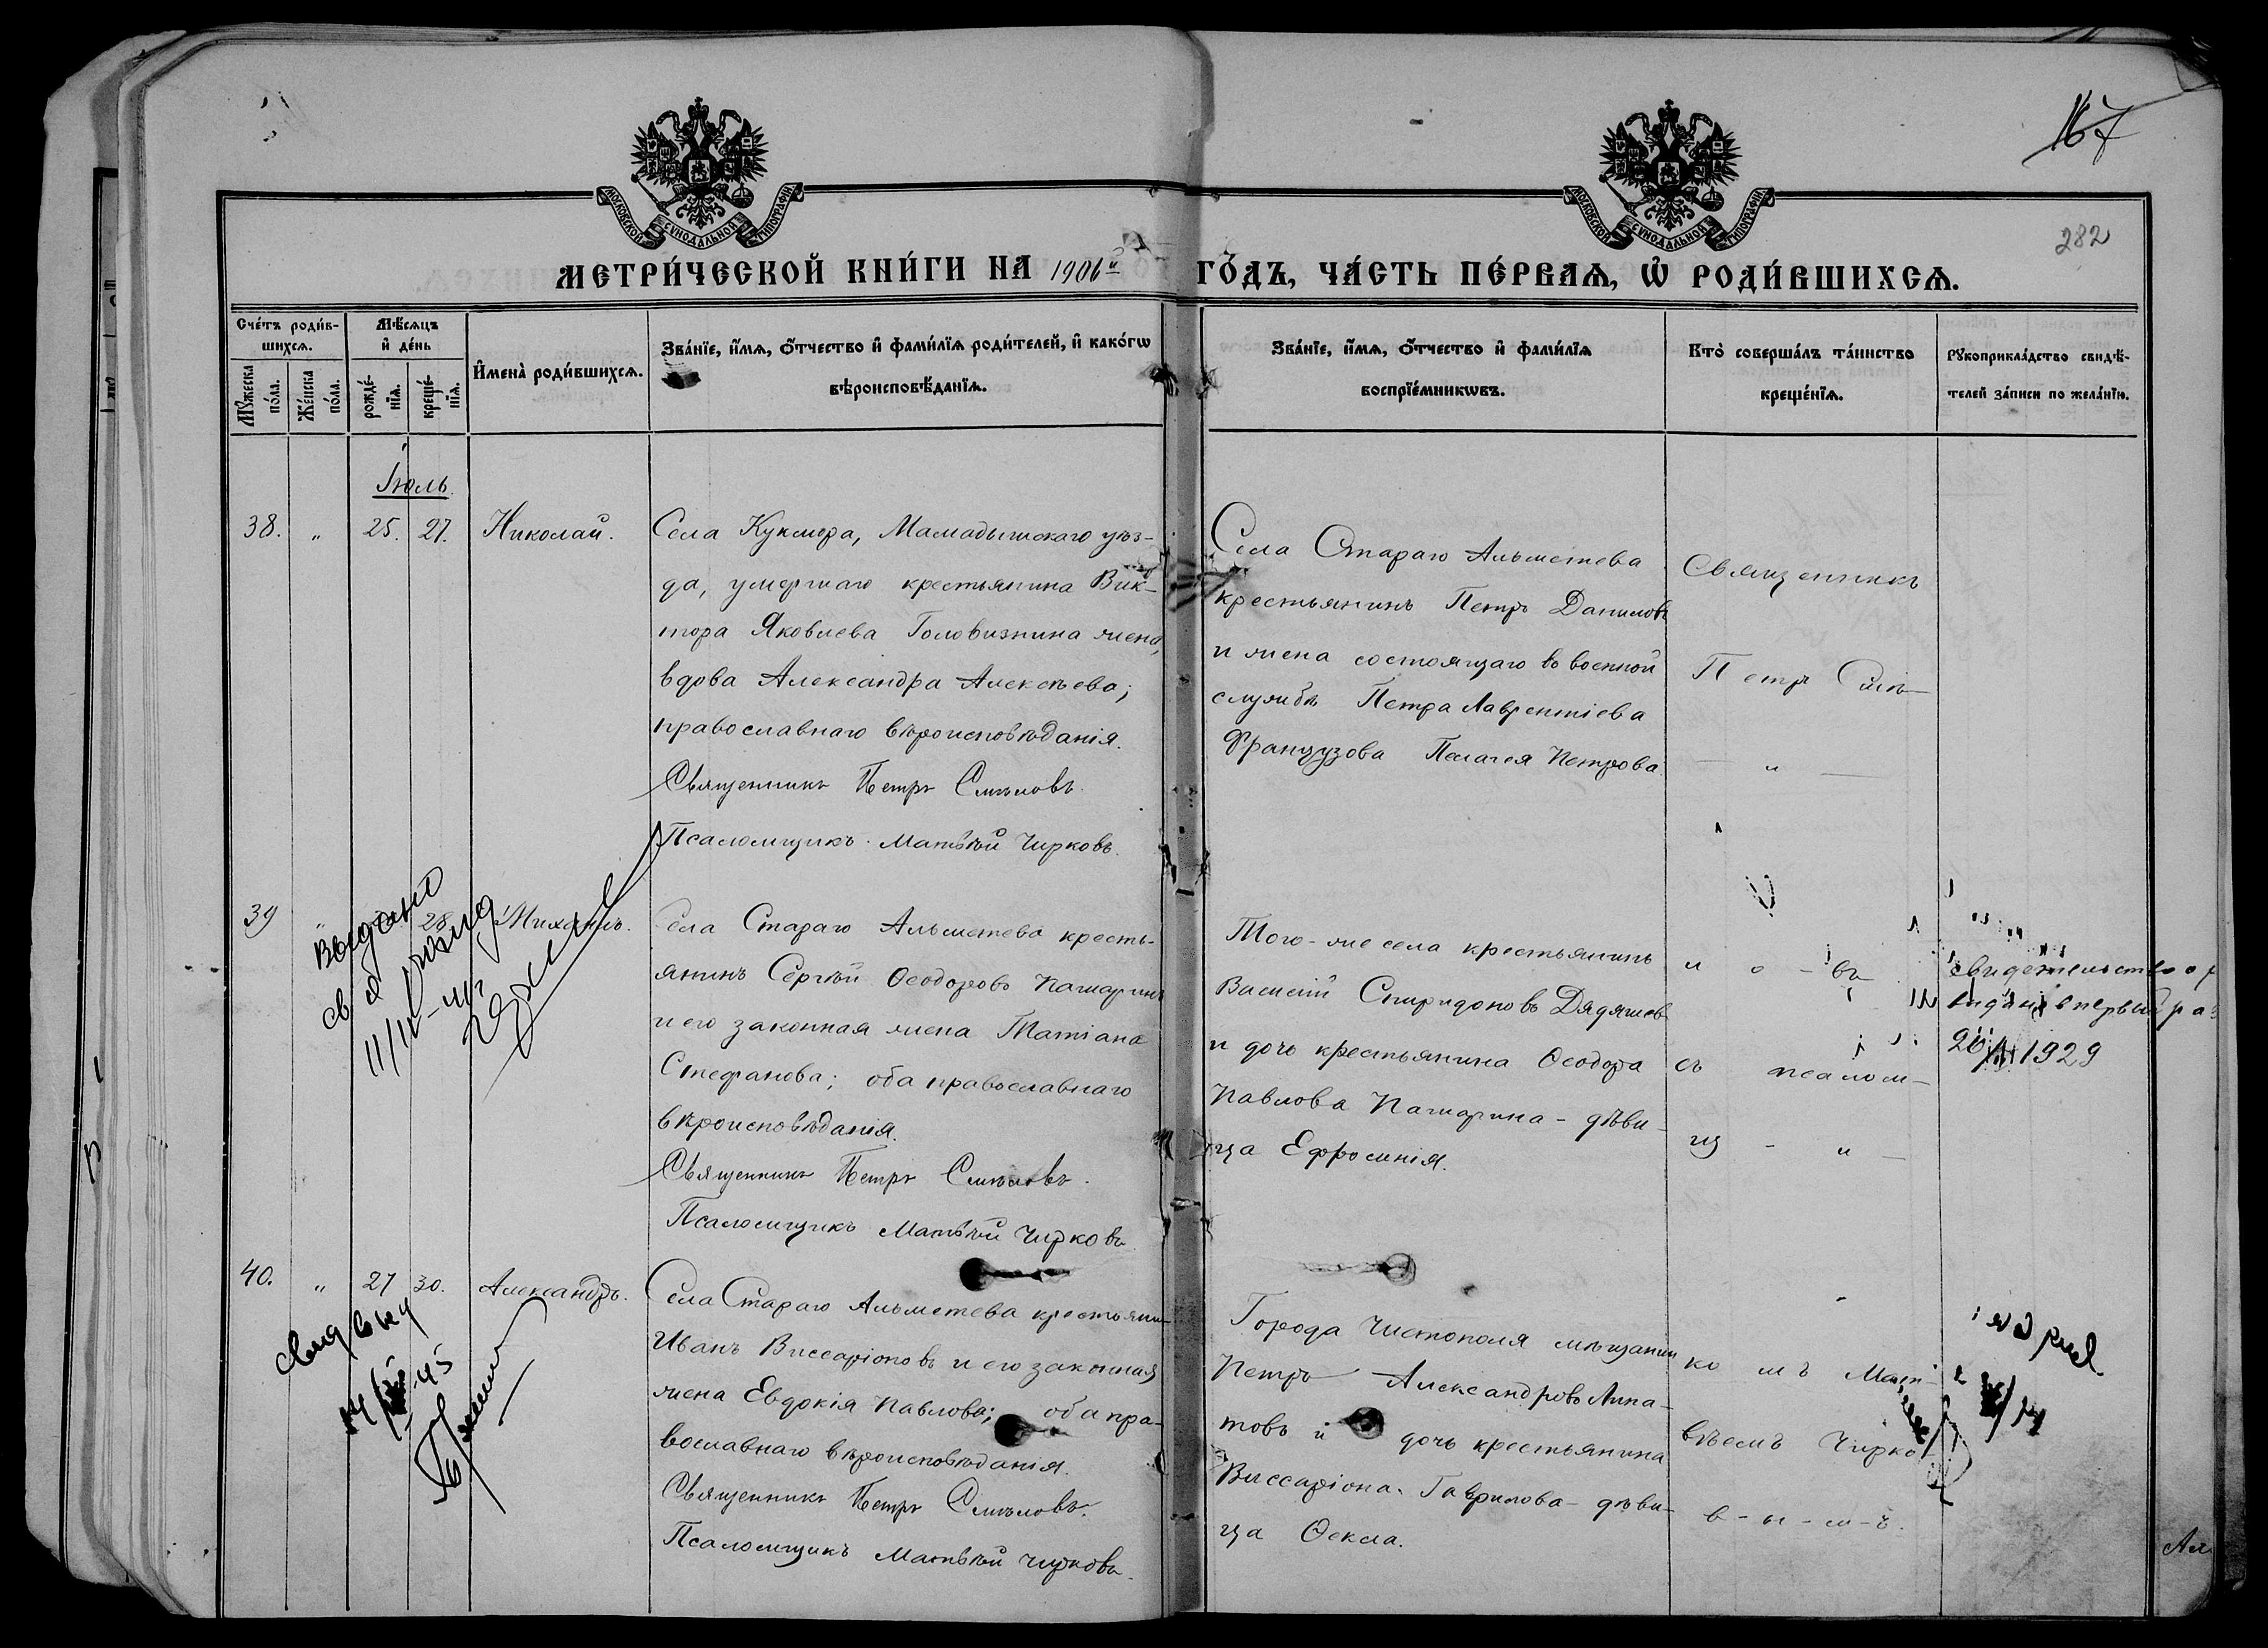 167
282
МОСКОВСКОЙ СѴНОДАЛЬНОЙ ТИПОГРАФІИ
МОСКОВСКОЙ СѴНОДАЛЬНОЙ ТИПОГРАФІИ
МЕТРИ́ЧЕСКОЙ КНИ́ГИ НА 1906й ГО́ДЪ, ЧА́СТЬ ПЕ́РВАѦ, Ѡ҆ РОДИ́ВШИХСѦ.
Сче́тъ роди́в-
шихсѧ.
Мꙋ́жеска по́ла.
Же́нска по́ла.
Мѣ́сѧцъ
и҆ де́нь
рожде́-
нїѧ.
креще́-
нїѧ.
И҆мена̀ роди́вшихсѧ.
Зва́нїе, и҆́мѧ, ѻ҆́тчество и҆ фами́лїѧ роди́телей, и҆ како́гѡ
вѣроисповѣ́данїѧ.
Зва́нїе, и҆́мѧ, ѻ҆́тчество и҆ фами́лїѧ
воспрїе́мникѡвъ.
Кто̀ соверша́лъ та́инство
креще́нїѧ.
Рꙋкоприкла́дство свидѣ́-
телей за́писи по жела́нїю.
Іюль.
38. „ 25. 27. Николай.
Села Кукмора, Мамадышскаго уѣз-
да, умершаго крестьянина Вик-
тора Яковлева Головизнина жена,
вдова Александра Алексѣева;
православнаго вѣроисповѣданія.
Священникъ Петръ Смѣловъ.
Псаломщикъ Матѳѣй Чирковъ.
Села Стараго Альметева
крестьянинъ Петръ Даниловъ
и жена состоящаго въ военной
службѣ Петра Лаврентіева
Французова Пелагея Петрова
Священникъ
Петръ Смѣ-
— и —
39 „ 28 Михаилъ.
Выдано
11/IV-
Села Стараго Альметева кресть-
янинъ Сергѣй Ѳеодоровъ Пашаринъ
и его законная жена Татіана
Стефанова; оба православнаго
вѣроисповѣданія.
Священникъ Петръ Смѣловъ.
Псаломщикъ Матѳѣй Чирковъ
Того-же села крестьянинъ
Василій Спиридоновъ Дядяшев
и дочь крестьянина Ѳеодора
Павлова Пашарина - дѣви-
ца Ефросинія.
л о - въ
съ псалом-
щ - и -
свидетельство
выдан в первый раз
1929
40. „ 27 30. Александръ.
-45
Села Стараго Альметева крестьянин
Иванъ Виссаріоновъ и его законная
жена Евдокія Павлова; оба пра-
вославнаго вѣроисповѣданія.
Священникъ Петръ Смѣловъ.
Псаломщикъ Матѳѣй Чирковъ.
Города Чистополя мѣщанин
Петръ Александровъ Липа-
товъ и дочь крестьянина
Виссаріона Гаврилова - дѣви-
ца Ѳекла.
ко мъ Мат-
вѣемъ Чирко
в - ы - м - ъ.